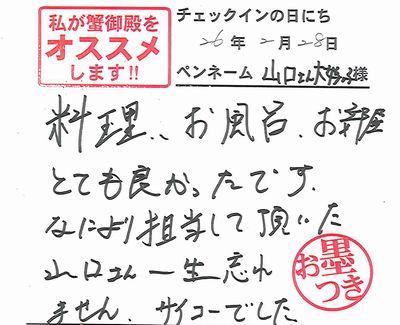 私が蟹御殿を
オススメ
します!!
チェックインの日にち
26年2月28日
ペンネーム 山口さん大好っ子様
料理、お風呂、お部屋
とても良かったです。
なにより担当して頂いた
山口さん一生忘れ
ません、サイコーでした
お墨つき